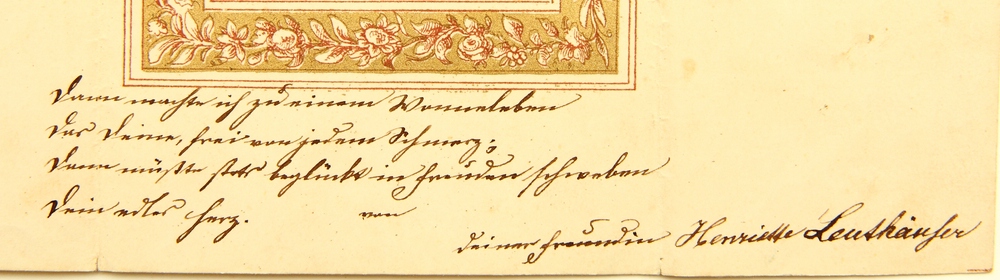 Dann machte ich zu einem Wonneleben
Das Deine, frei von jedem Schmerz;
Dann müßte stets beglückt in Freuden schweben
Dein edles Herz.
von
deiner Freundin Henriette Leuthäußer